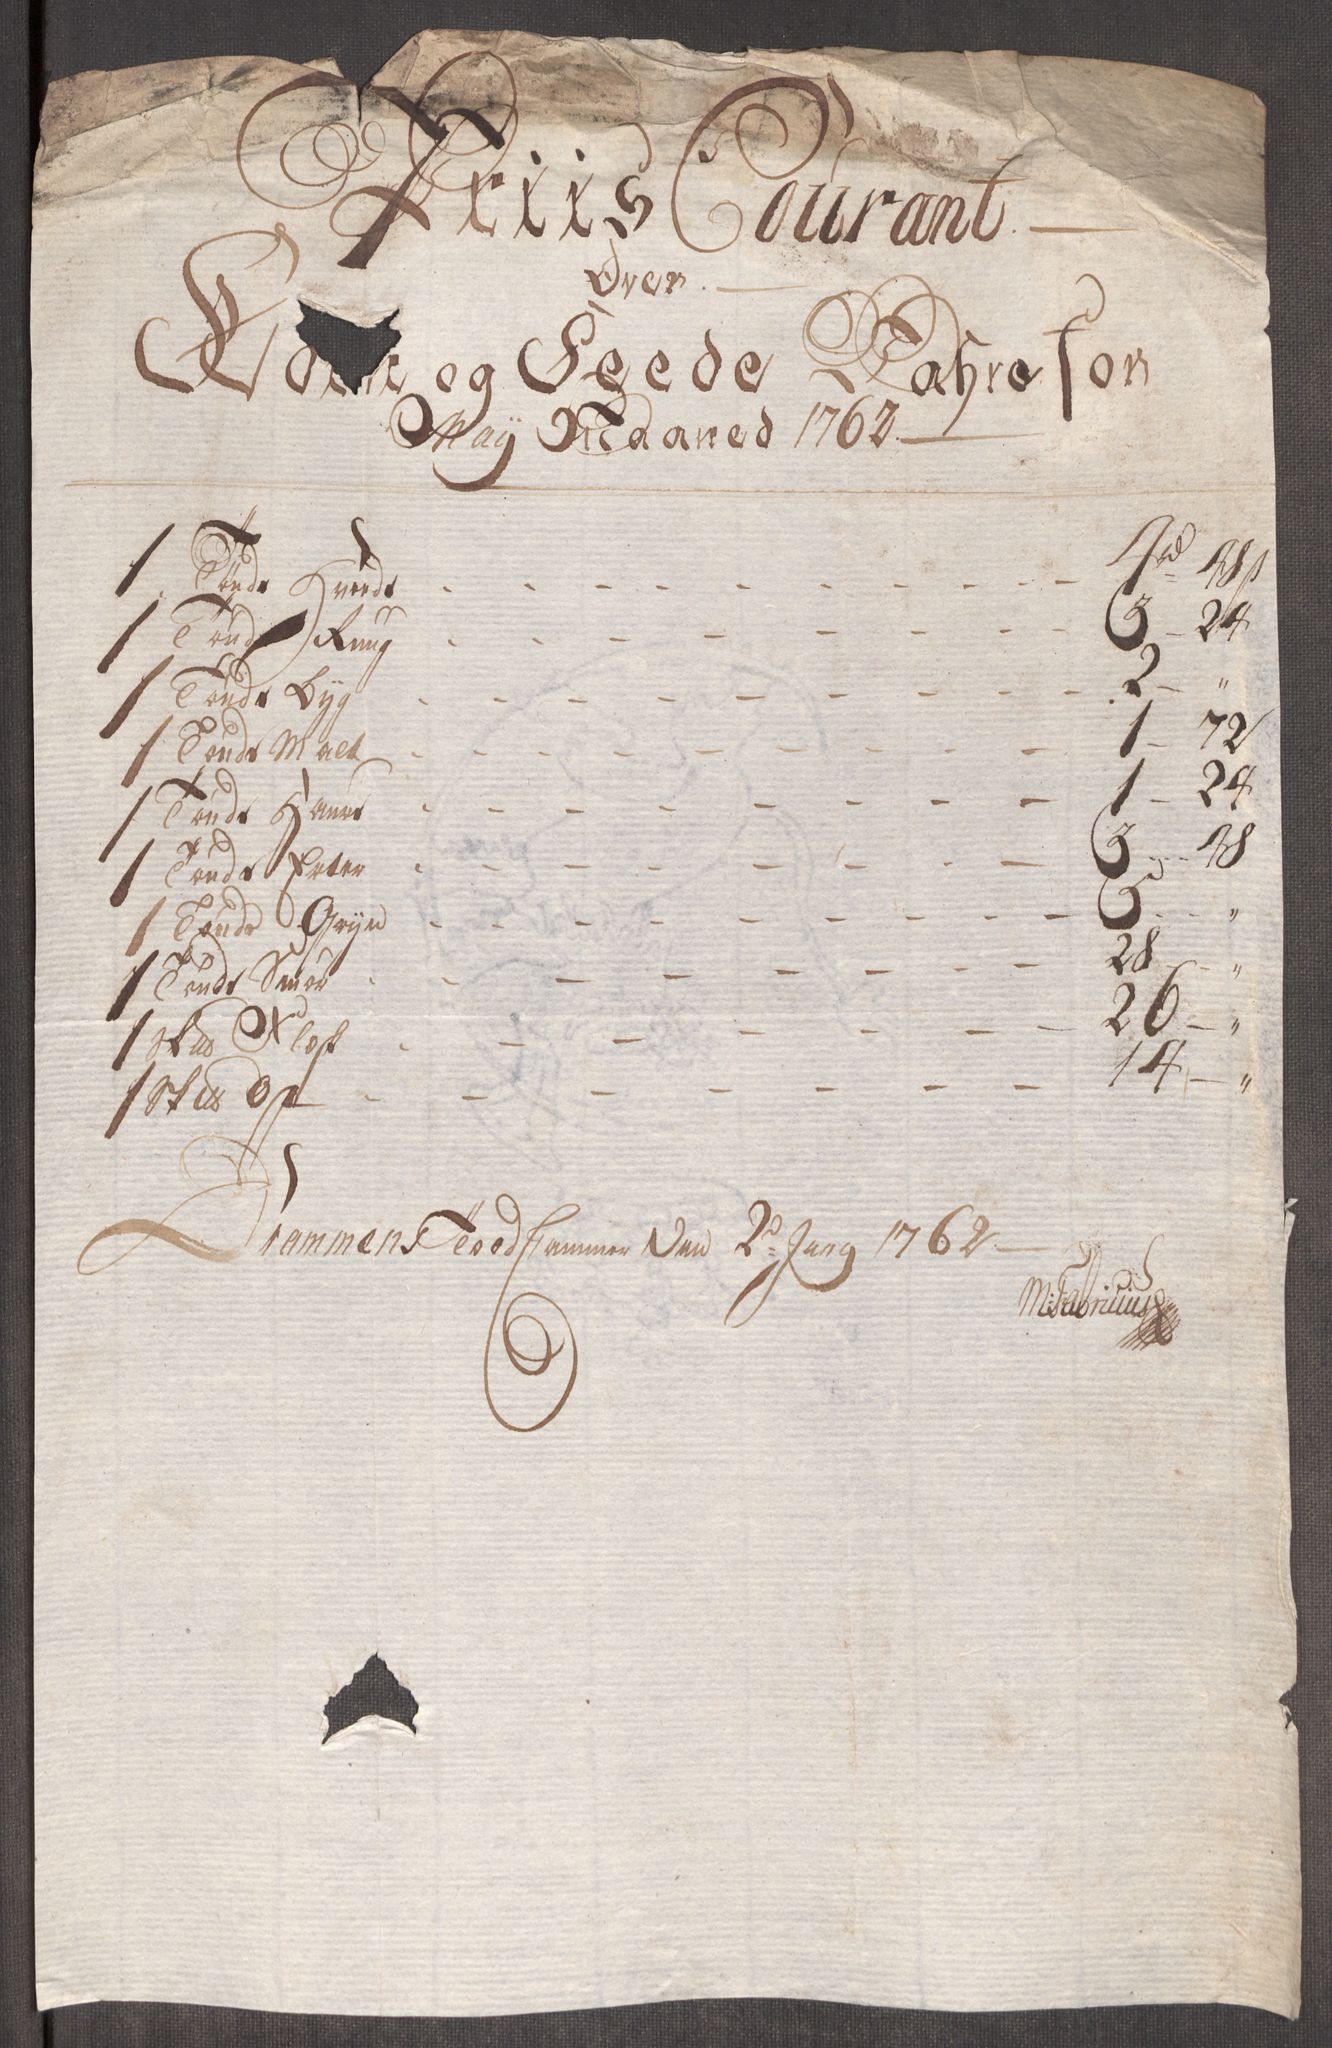 Priis Courant
Over
og Feede Vahre for
Maÿ Maaned 1762
1 Tønde Hvede - 4 rd 48 s
1 Tønde Rüüg - 3 - 24
1 Tønde Byg - 2 - "
1 Tønde Malt - 1 - 72
1 Tønde Haure - 1 - 24
1 Tønde Erter - 3 - 48
1 Tønde Grÿn - 6 - "
1 Tønde Smør - 28 - "
1 Flesk - 26 - "
1 - 14 - "
Drammens Toldcammer Den 2d Juny 1762
M: Fabritius